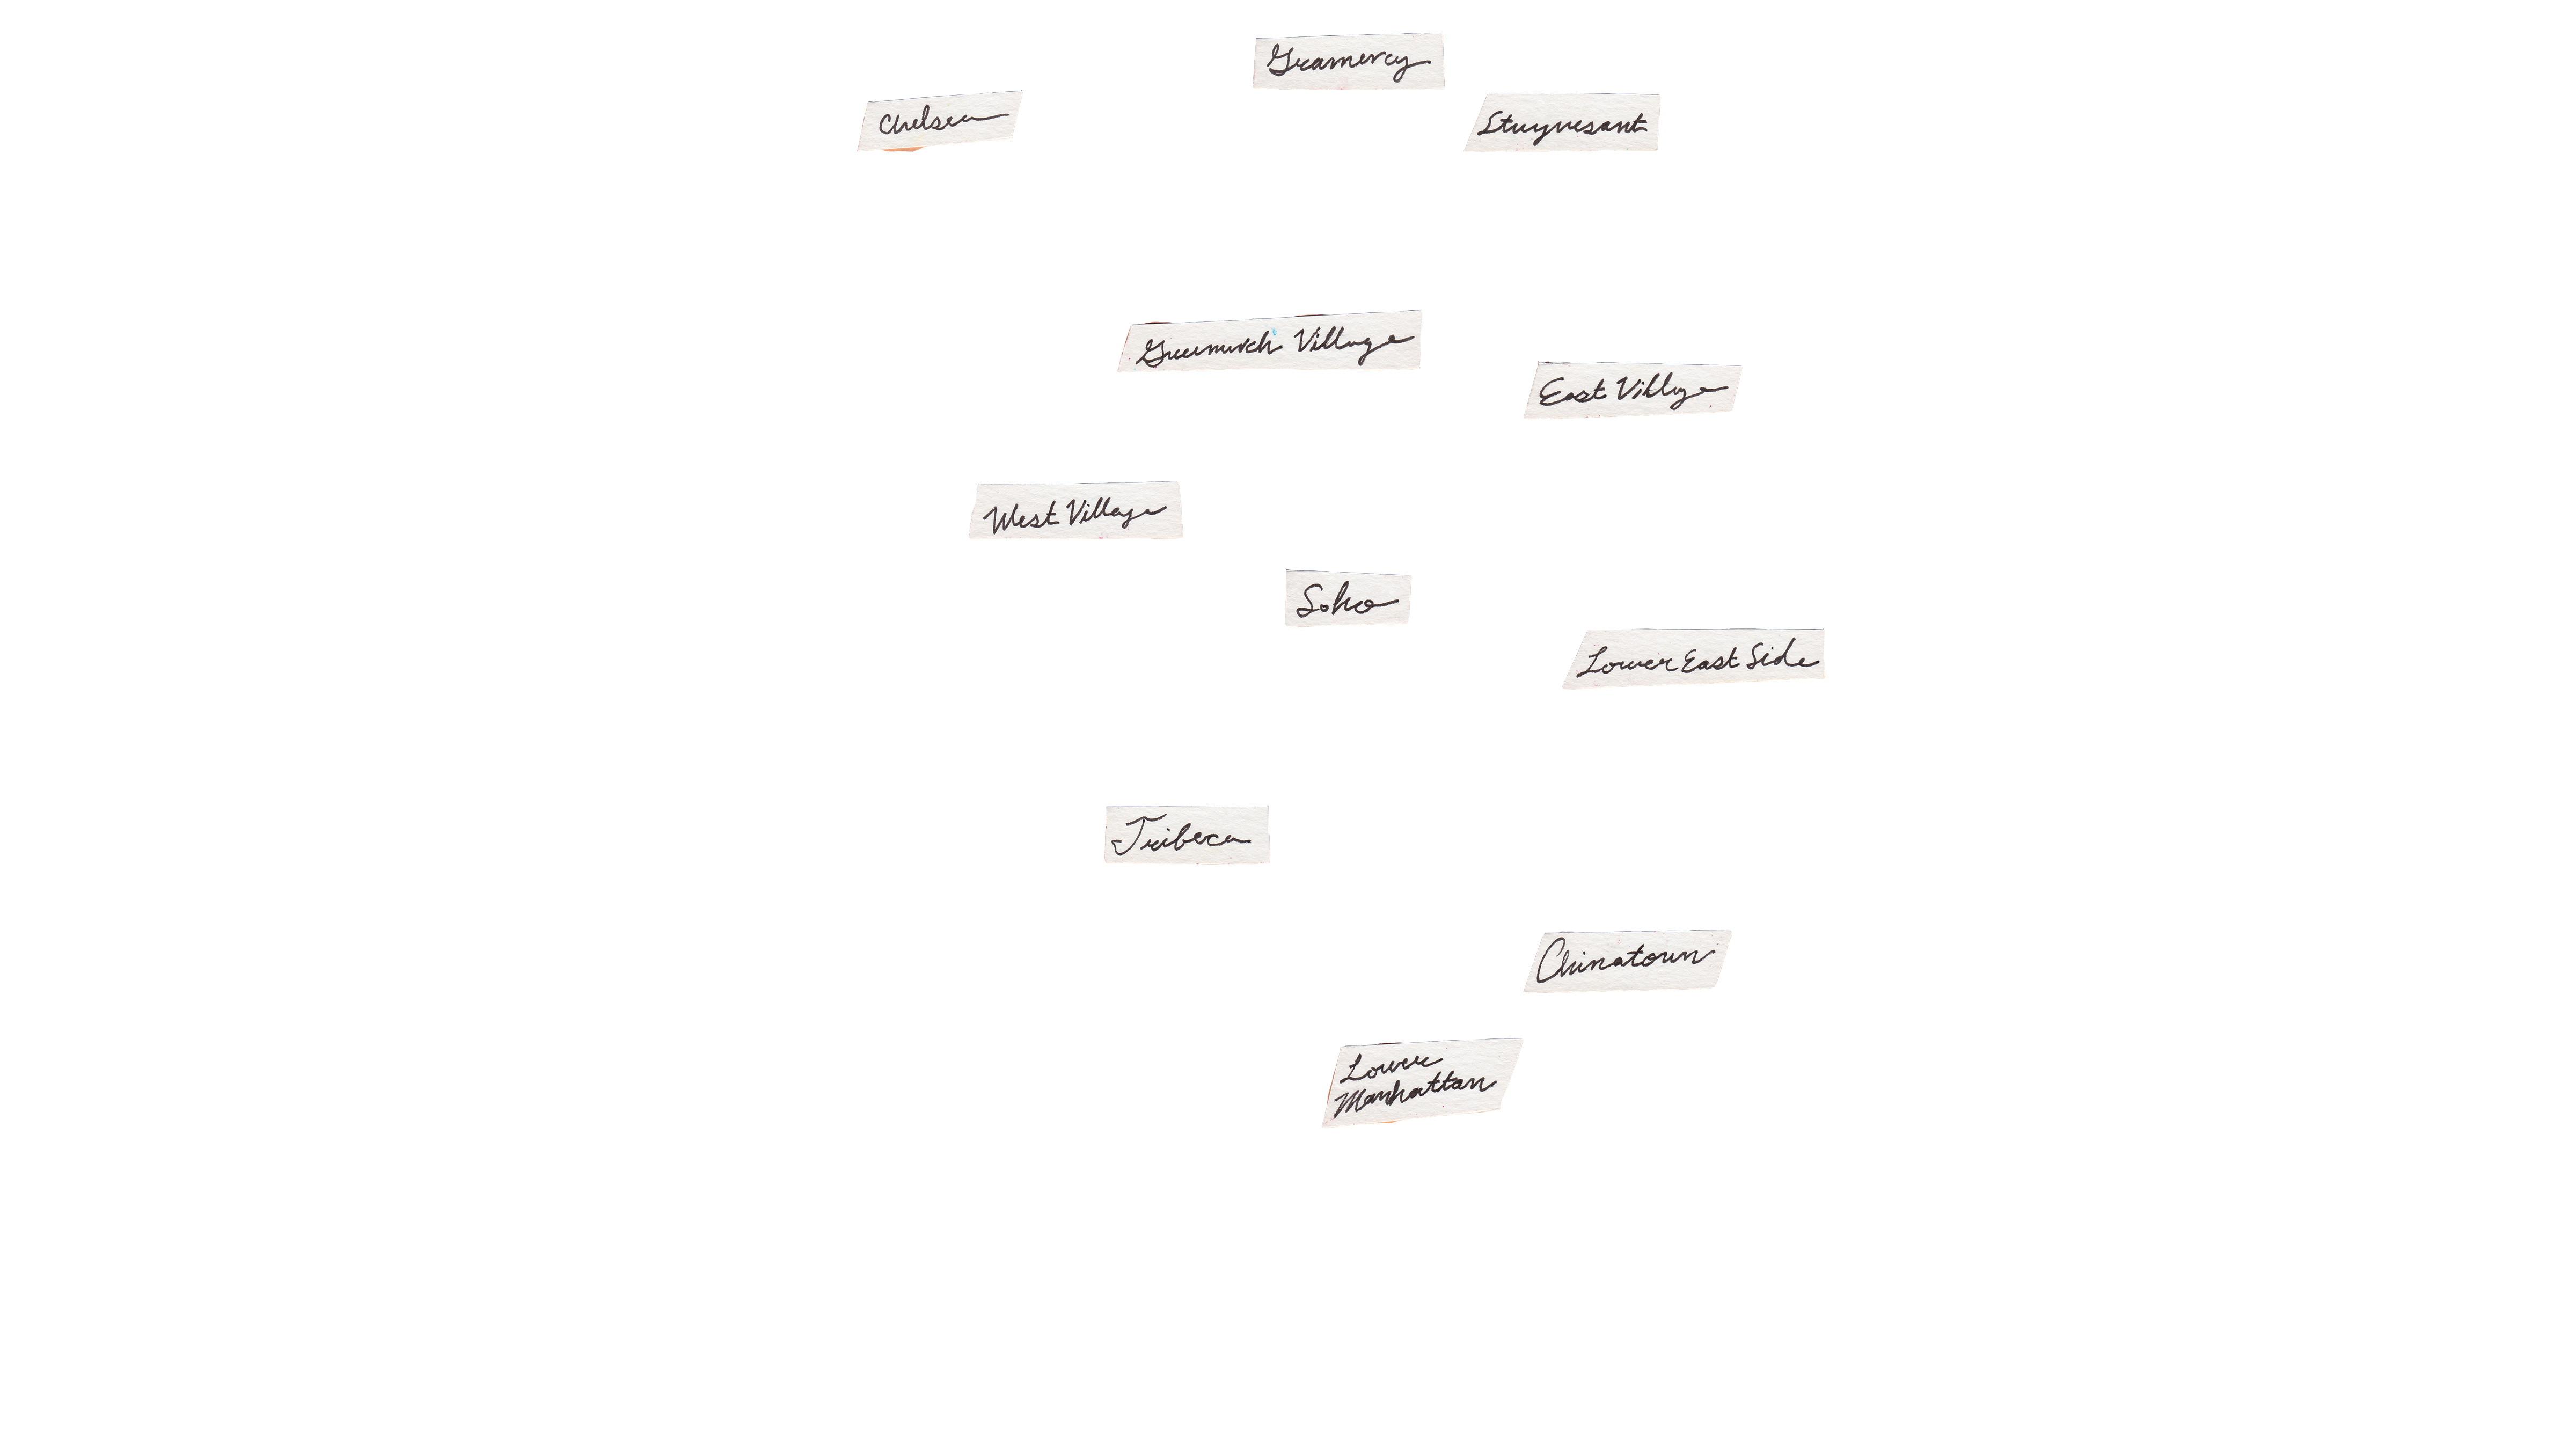 Gramercy
Chelsea
Stuyvesant
Greenwich Village
East Village
West Village
Soho
Lower East Side
Tribeca
Chinatown
Lower
Manhattan